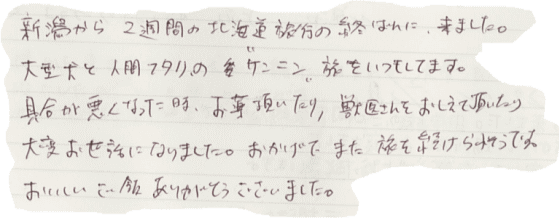 新潟から 2週間の北海道旅行の終ばんに、来ました。
大型犬と人間フタリの貧ゲンニン旅をいつもしてます。
具合が悪くなった時、お薬頂いたり、獣医さんをおしえて頂いたり
大変お世話になりました。おかげで また 旅を続けられそうです。
おいしいご飯ありがとうございました。